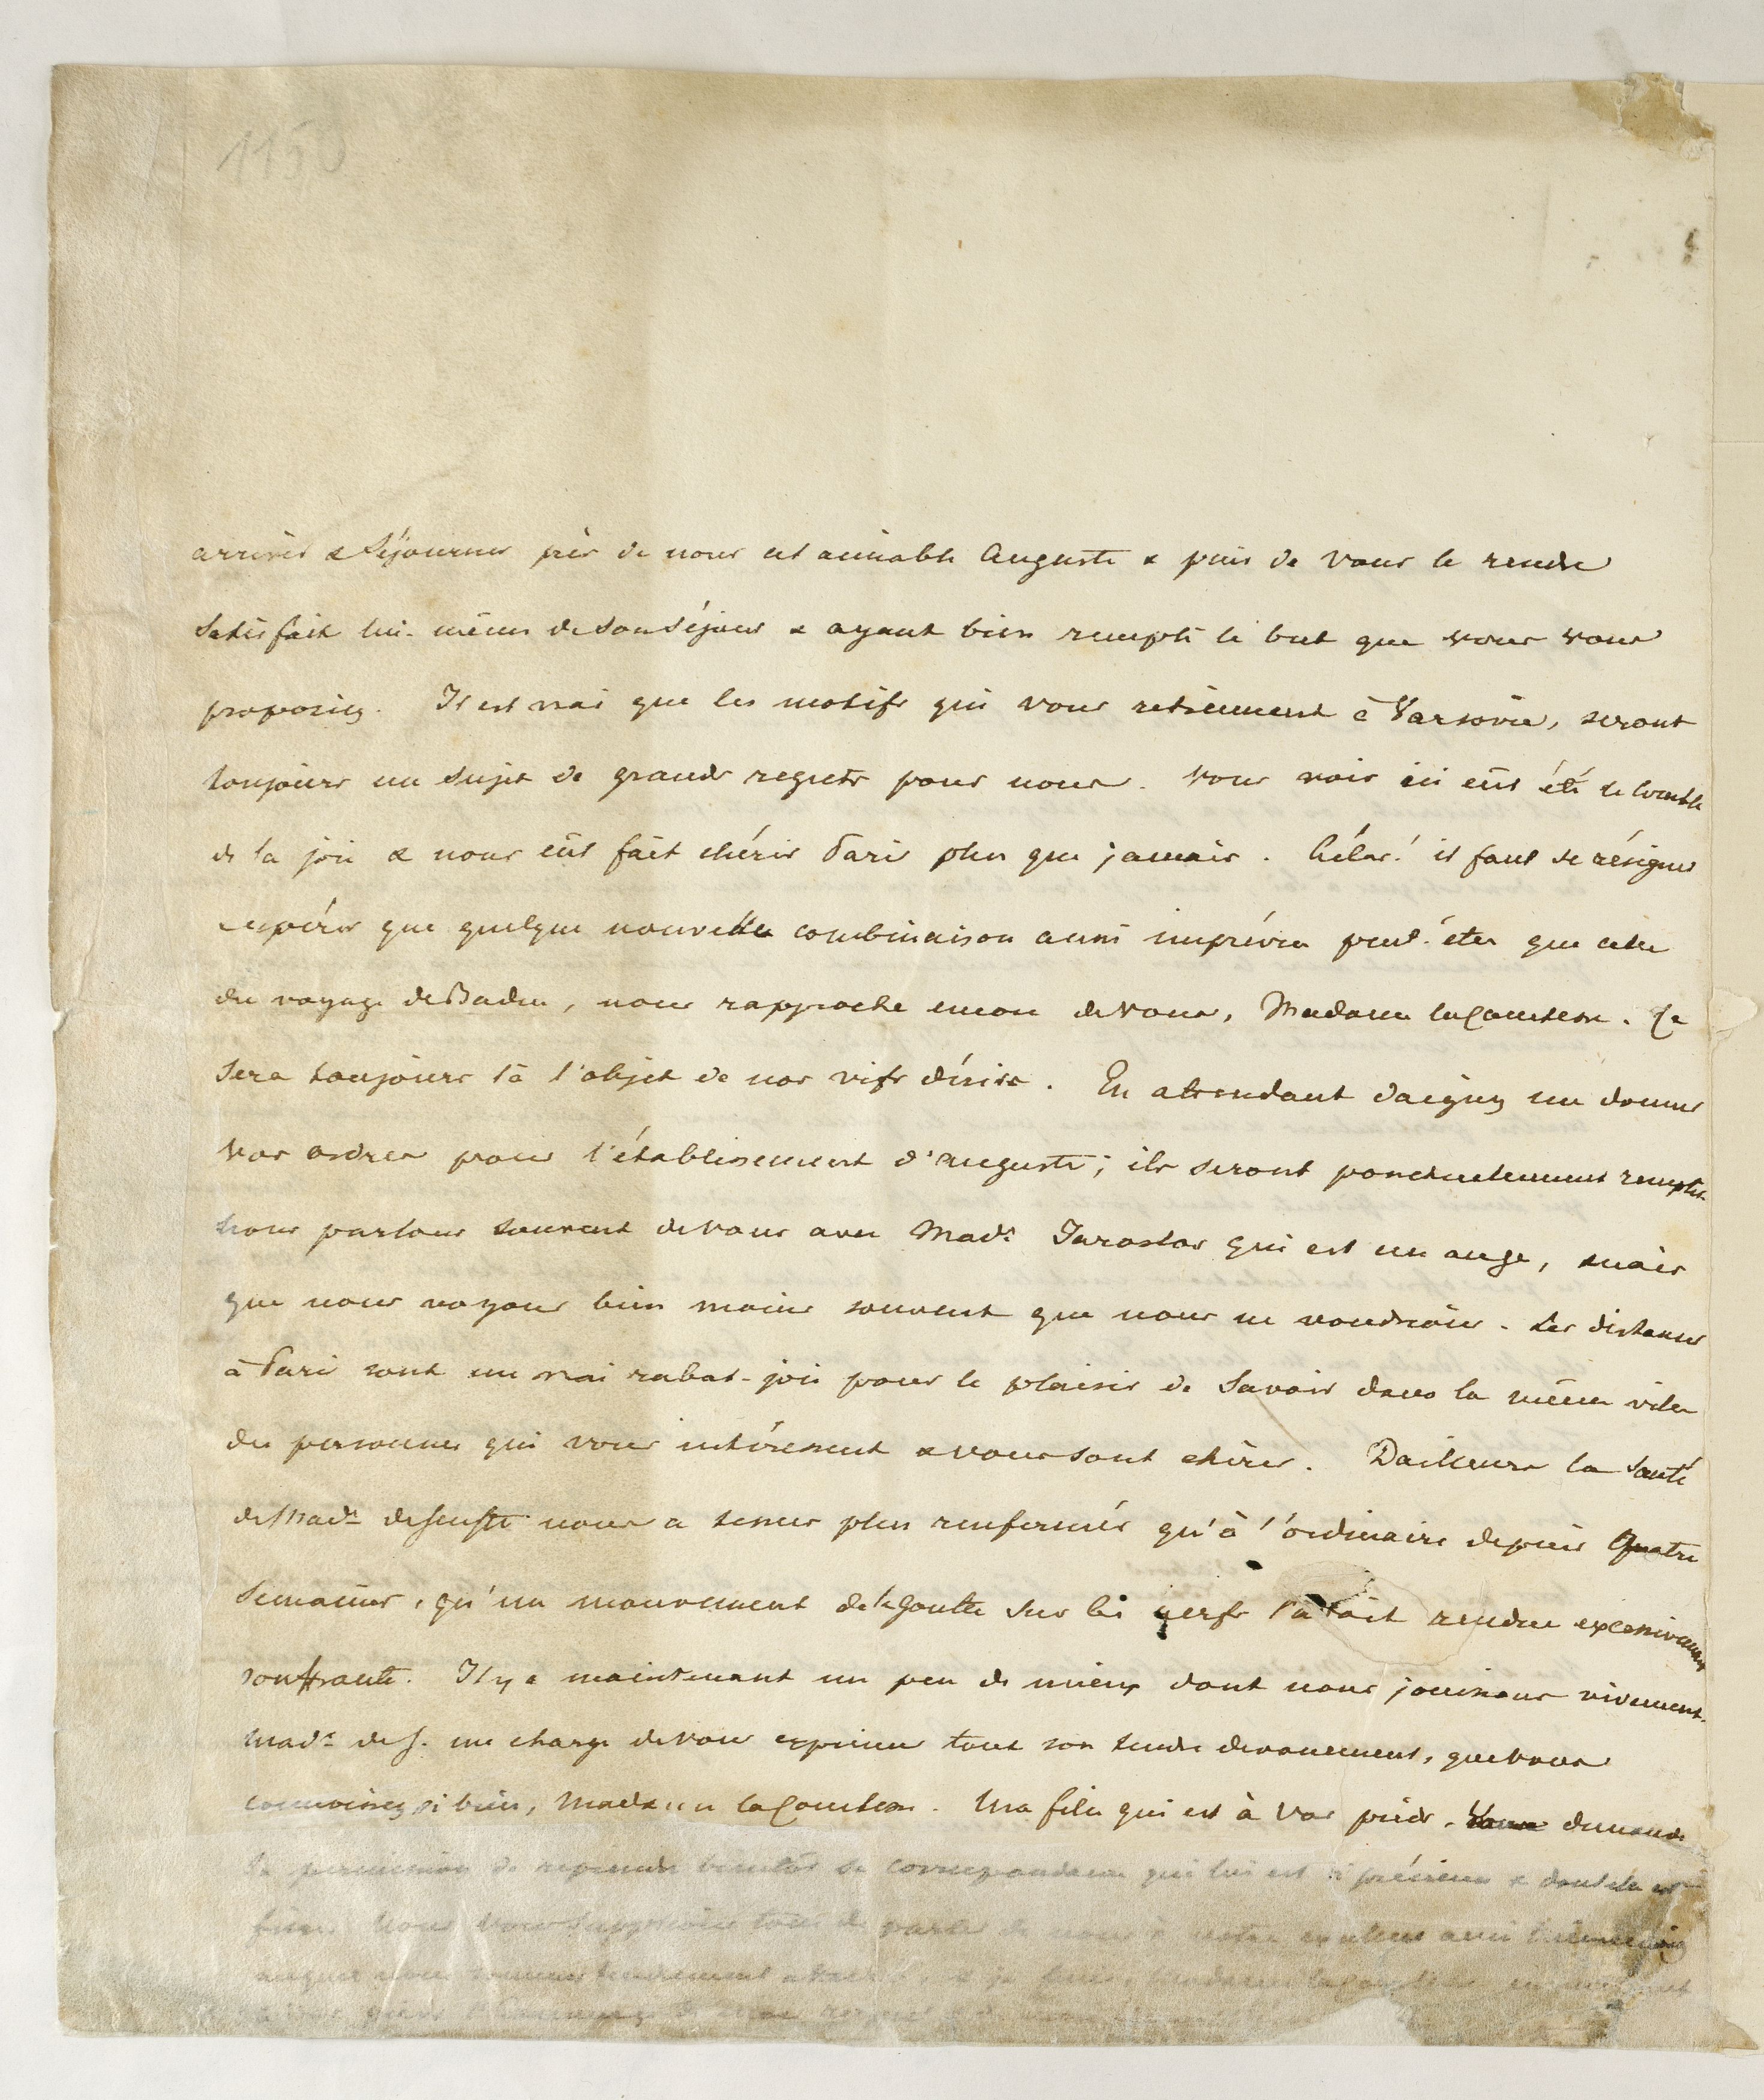 1150
arriver & séjourner près de nous cet aimable Auguste & puis de vous le rendre
satisfait lui-même de son séjour & ayant bien rempli le but que vous vous
proposiez. Il est vrai que les motifs qui vous retiennent à Varsovie, seront
toujours un sujet de grands regrets pour nous. Vous voir ici eût été le comble
de la joie & nous eût fait chérir Paris plus que jamais. hélas! il faut se résigner
espérer que quelque nouvelle combinaison aussi imprévue peut-être que celle
du voyage de Baden, nous rapproche encore de vous, Madame la Comtesse. Ce
sera toujours là l'objet de nos vifs désirs. En attendant daignez me donner
vos ordres pour l'établissement d'auguste; ils seront ponctuellement remplis
nous parlons souvent de vous avec Made Jaroslas qui est un ange, mais
que nous voyons bien moins souvent que nous ne voudrions. Les distances
à Paris sont un vrai rabat-joie pour le plaisir de savoir dans la même ville
des personnes qui vous intéressent & vous sont chères. Dailleurs la santé
de Made de nous a tenus plus renfermés qu'à l'ordinaire depuis quatre
semaines, qu'un mouvement de la goutte sur les nerfs l'a fait rendre excessivement
souffrante. Il y a maintenant un peu de mieux dont nous jouissons vivement.
Made de S. me charge de vous exprimer tout son tendre dévouement, que vous
connoissez si bien, Madame la Comtesse. Ma fille qui est à vos pieds, demande
la permission de reprendre bientôt sa correspondance qui lui est si précieuse & dont elle est
fière. Nous vous supplions tous de parler de nous à notre excellent ami
auquel nous sommes tendrement attachés, & je finis, Madame la Comtesse en
à vos pieds l'hommage de mon respect & de mon